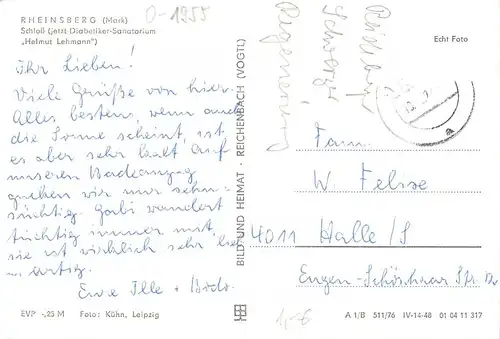 RHEINSBERG (Mark)
Schloß (jetzt Diabetiker-Sanatorium
„Helmut Lehmann")
0-1955
Ihr Lieben!
Viele Grüße von hier.
Alles besten, wenn auch
die Sonne scheint, ist
es aber sehr kalt. Auf
unseren Badeanzug
gucken wir nur sehn-
süchtig. Gabi wandert
tüchtig immer mit,
sie ist wirklich sehr lieb
u. artig.
Eure Ille +
EVP -,25 M Foto: Kühn, Leipzig
BILD UND HEIMAT - REICHENBACH (VOGTL)
Echt Foto
Fam.
W Felse
4011 Halle/S
Eugen-Schönhaar Str.
A 1/B 511/76 IV-14-48 01 04 11 317